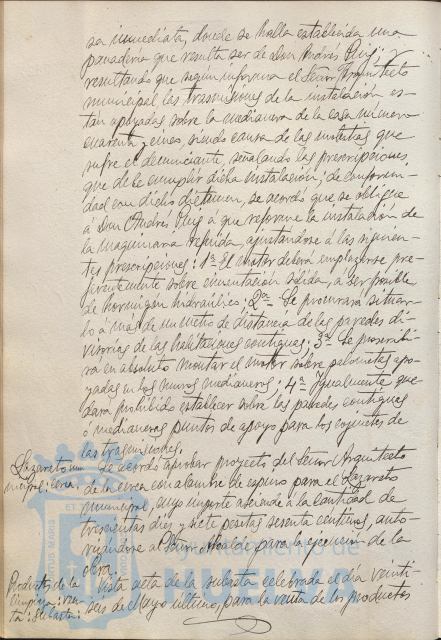 sa inmediata, donde se halla establecida una
panadería que resulta ser de Don Andrés Puig y
resultando que según informa el Señor Arquitecto
municipal las trasmisiones de la instalación es-
tan apoyadas sobre la medianera de la casa número
cuarenta y cinco, siendo causa de las molestias que
sufre el denunciante, señalando las prescripciones,
que debe cumplir dicha instalación; de conformi-
dad con dicho dictamen, se acordó que se obligue
á Don Andrés Puig á que reforme la instalación de
la maquinaria referida, ajustandose á las siguien-
tes prescripciones: 1ª El motor deberá emplazarse pre-
ferentemente sobre cimentación sólida, á ser posible
de hormigón hidráulico; 2ª Se procurará situar-
lo á más de un metro de distancia de las paredes di-
visorias de las habitaciones contiguas; 3ª Se proscribi-
rá en absoluto montar el motor sobre palometas apo-
yadas en los muros medianeros; 4ª Igualmente que-
dara prohibido establecer sobre las paredes contiguas
ó medianeras puntos de apoyo para los cojinetes de
las trasmisiones.
Lazareto mu-
nicipal: cerca.
Se acordó aprobar proyecto del Señor Arquitecto
de la cerca con alambre de espino para el Lazareto
municipal, cuyo importe asciende á la cantidad de
trescientas diez y siete pesetas sesenta céntimos, auto-
rizandose al Señor Alcalde para la ejecución de la
obra.
Productos de la
limpieza: ven-
ta: Subasta:
Vista acta de la subasta celebrada el día veinti
seis de Mayo último, para la venta de los productos
Ayuntamiento de
HUELVA